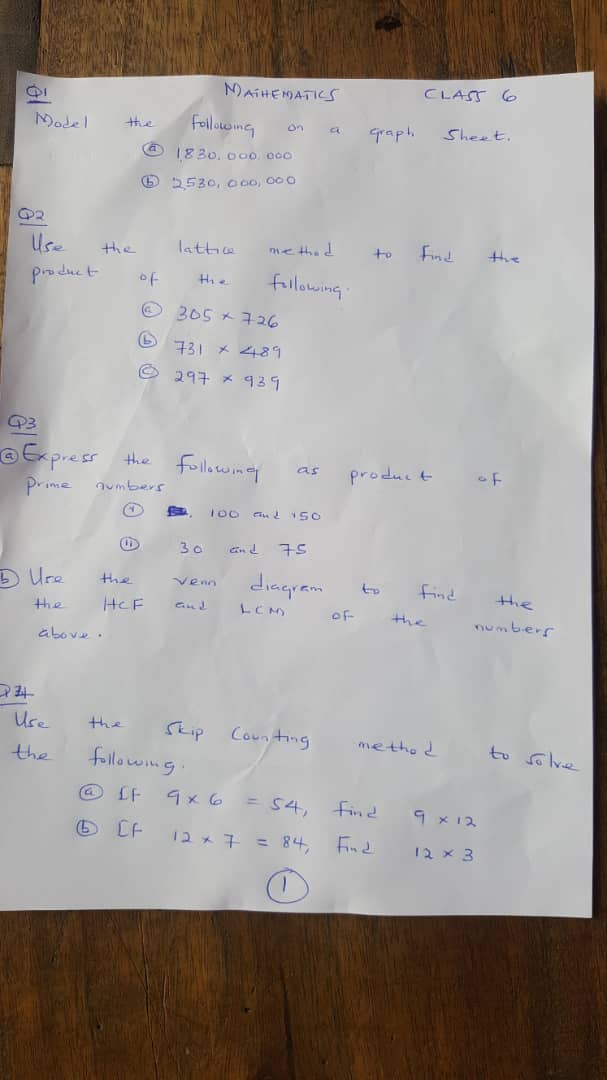 Q1 MATHEMATICS CLASS 6
Model the following on a graph sheet.
(a) 1,830,000,000
(b) 2,530,000,000
Q2
Use the lattice method to find the
product of the following.
(a) 305 × 726
(b) 731 × 489
(c) 297 × 939
Q3
(a) Express the following as product of
prime numbers
(i) 100 and 150
(ii) 30 and 75
b) Use the venn diagram to find the
the HCF and LCM of the numbers
above.
Q4
Use the skip counting method to solve
the following.
(a) If 9 × 6 = 54, find 9 × 12
(b) If 12 × 7 = 84, find 12 × 3
1